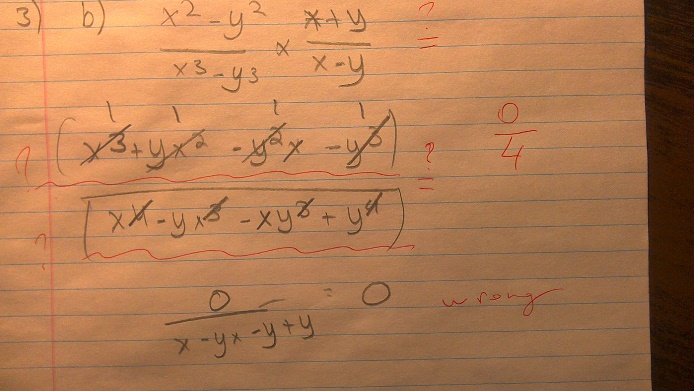 3) b) x² - y² / x³ - y³ × x + y / x - y ? =
1 1 1 1
? (x³ + yx² - y²x - y³) ? = 0/4
? (x⁴ - yx³ - xy³ + y⁴)
0 / x - yx - y + y = 0 wrong